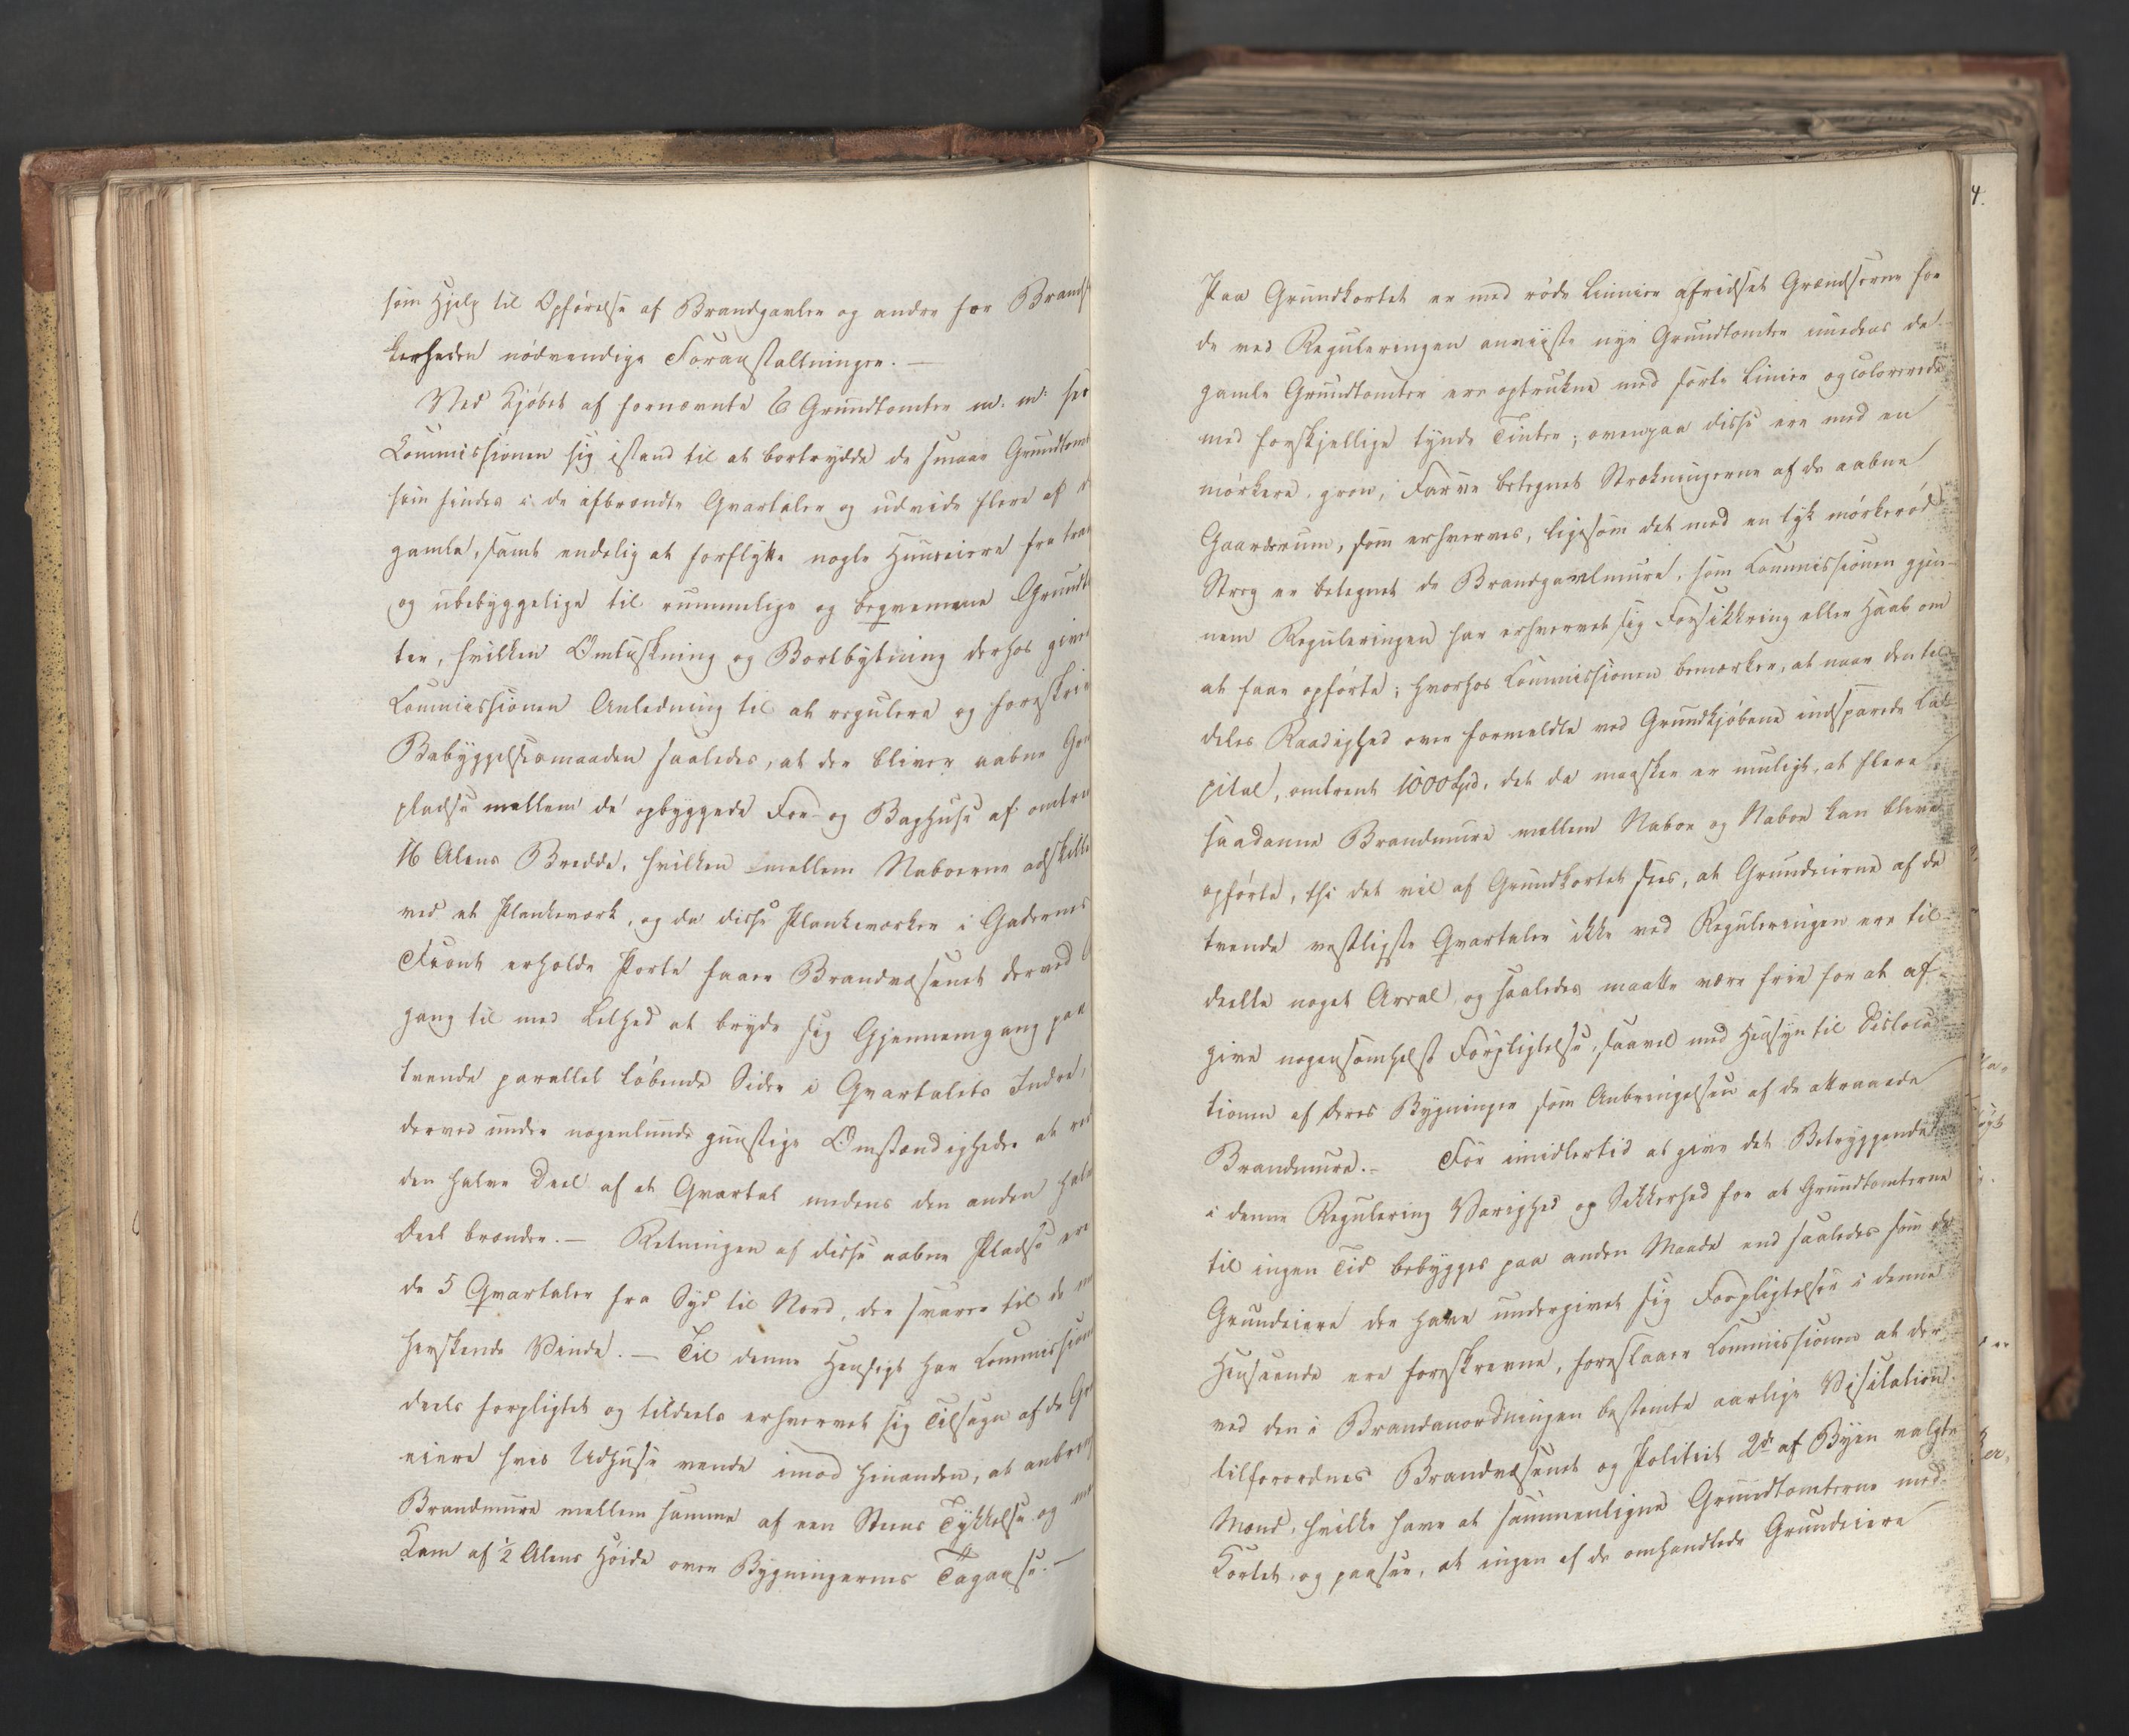 som Hjelp til Opförelse af Brandgavler og andre for Brandsi
kerheden nödvendige Foranstaltninger. —
Ved Kjöbet af fornævnte 6 Grundtomter m: m: seer
Commissionen sig istand til at bortrydde de smaae Grundtomt
som findes i de afbrændte Qvartaler og udvide flere af d
gamle, samt endelig at forflytte nogle Huuseiere fra tran
og ubebyggelige til rummelige og beqvemme Grundt
ter, hvilken Omtuskning og Bortbytning derhos giver
Commissionen Anledning til at regulere og foreskriv
Bebyggelsesmaaden saaledes, at der bliver aabne Ga
pladse mellem de opbyggede For- og Baghuse af omtren
16 Alens Bredde, hvilken imellem Naboerne adskille
ved et Plankeværk, og da disse Plankeværker i Gadernes
Front erholde Porte faaer Brandvæsenet derved
gang til med Lethed at bryde sig Gjennemgang paa
tvende parallel löbende Sider i Qvartalets Indre,
derved under nogenlunde gunstige Omstændigheder at red
den halve Deel af et Qvartal medens den anden halv
Deel brænder. — Retningen af disse aabne Pladse ere
de 5 Qvartaler fra Syd til Nord, der svarer til de m
herskende Vinde. — Til denne Hensigt har Commission
deels forpligtet og tildeels erhvervet sig Tilsagn af de Gr
eiere hvis Udhuse vende imod hinanden, at anbring
Brandmure mellem samme af een Steens Tykkelse og med
Kam af ½ Alens Höide over Bygningernes Tagaase. —
Paa Grundkortet er med röde Linnier afridset Grændserne for
de ved Reguleringen anviiste nye Grundtomter imedens de
gamle Grundtomter ere optrukne med sorte Linier og colorerede
med forskjellige tynde Tinter; ovenpaa disse ere med en
mörkere, grøn, Farve betegnet Strækningerne af de aabne
Gaardsrum, som erhverves, ligesom det med en tyk mörkeröd
Streg er betegnet de Brandgavlmure, som Commissionen gjen-
nem Reguleringen har erhvervet sig Forsikkring eller Haab om
at faae opförte; hvorhos Commissionen bemærker, at naar den til-
deles Raadighed over formeldte ved Grundkjöbene indsparede Ca-
pital, omtrent 1000 Spd, det da maaskee er muligt, at flere
saadanne Brandmure mellem Naboe og Naboe kan blive
opförte, thi det vil af Grundkortet sees, at Grundeierne af de
tvende vestligste Qvartaler ikke ved Reguleringen ere til-
deelte noget Areal, og saaledes maatte være frie for at af-
give nogensomhelst Forpligtelse, saavel med Hensyn til Disloca-
tionen af deres Bygninger som Anbringelsen af de attraaede
Brandmure. — For imidlertid at give det Betryggende
i denne Regulering Varighed og Sikkerhed for at Grundtomterne
til ingen Tid bebygges paa anden Maade end saaledes som de
Grundeiere der have undergivet sig Forpligtelser i denne
Henseende ere foreskrevne, foreslaaer Commissionen at der
ved den i Brandanordningen bestemte aarlige Visitation
tilforordnes Brandvæsenet og Politiet 2de af Byen valgte
Mænd, hvilke have at sammenligne Grundtomterne med
Kortet, og paasee, at ingen af de omhandlede Grundeiere
4.